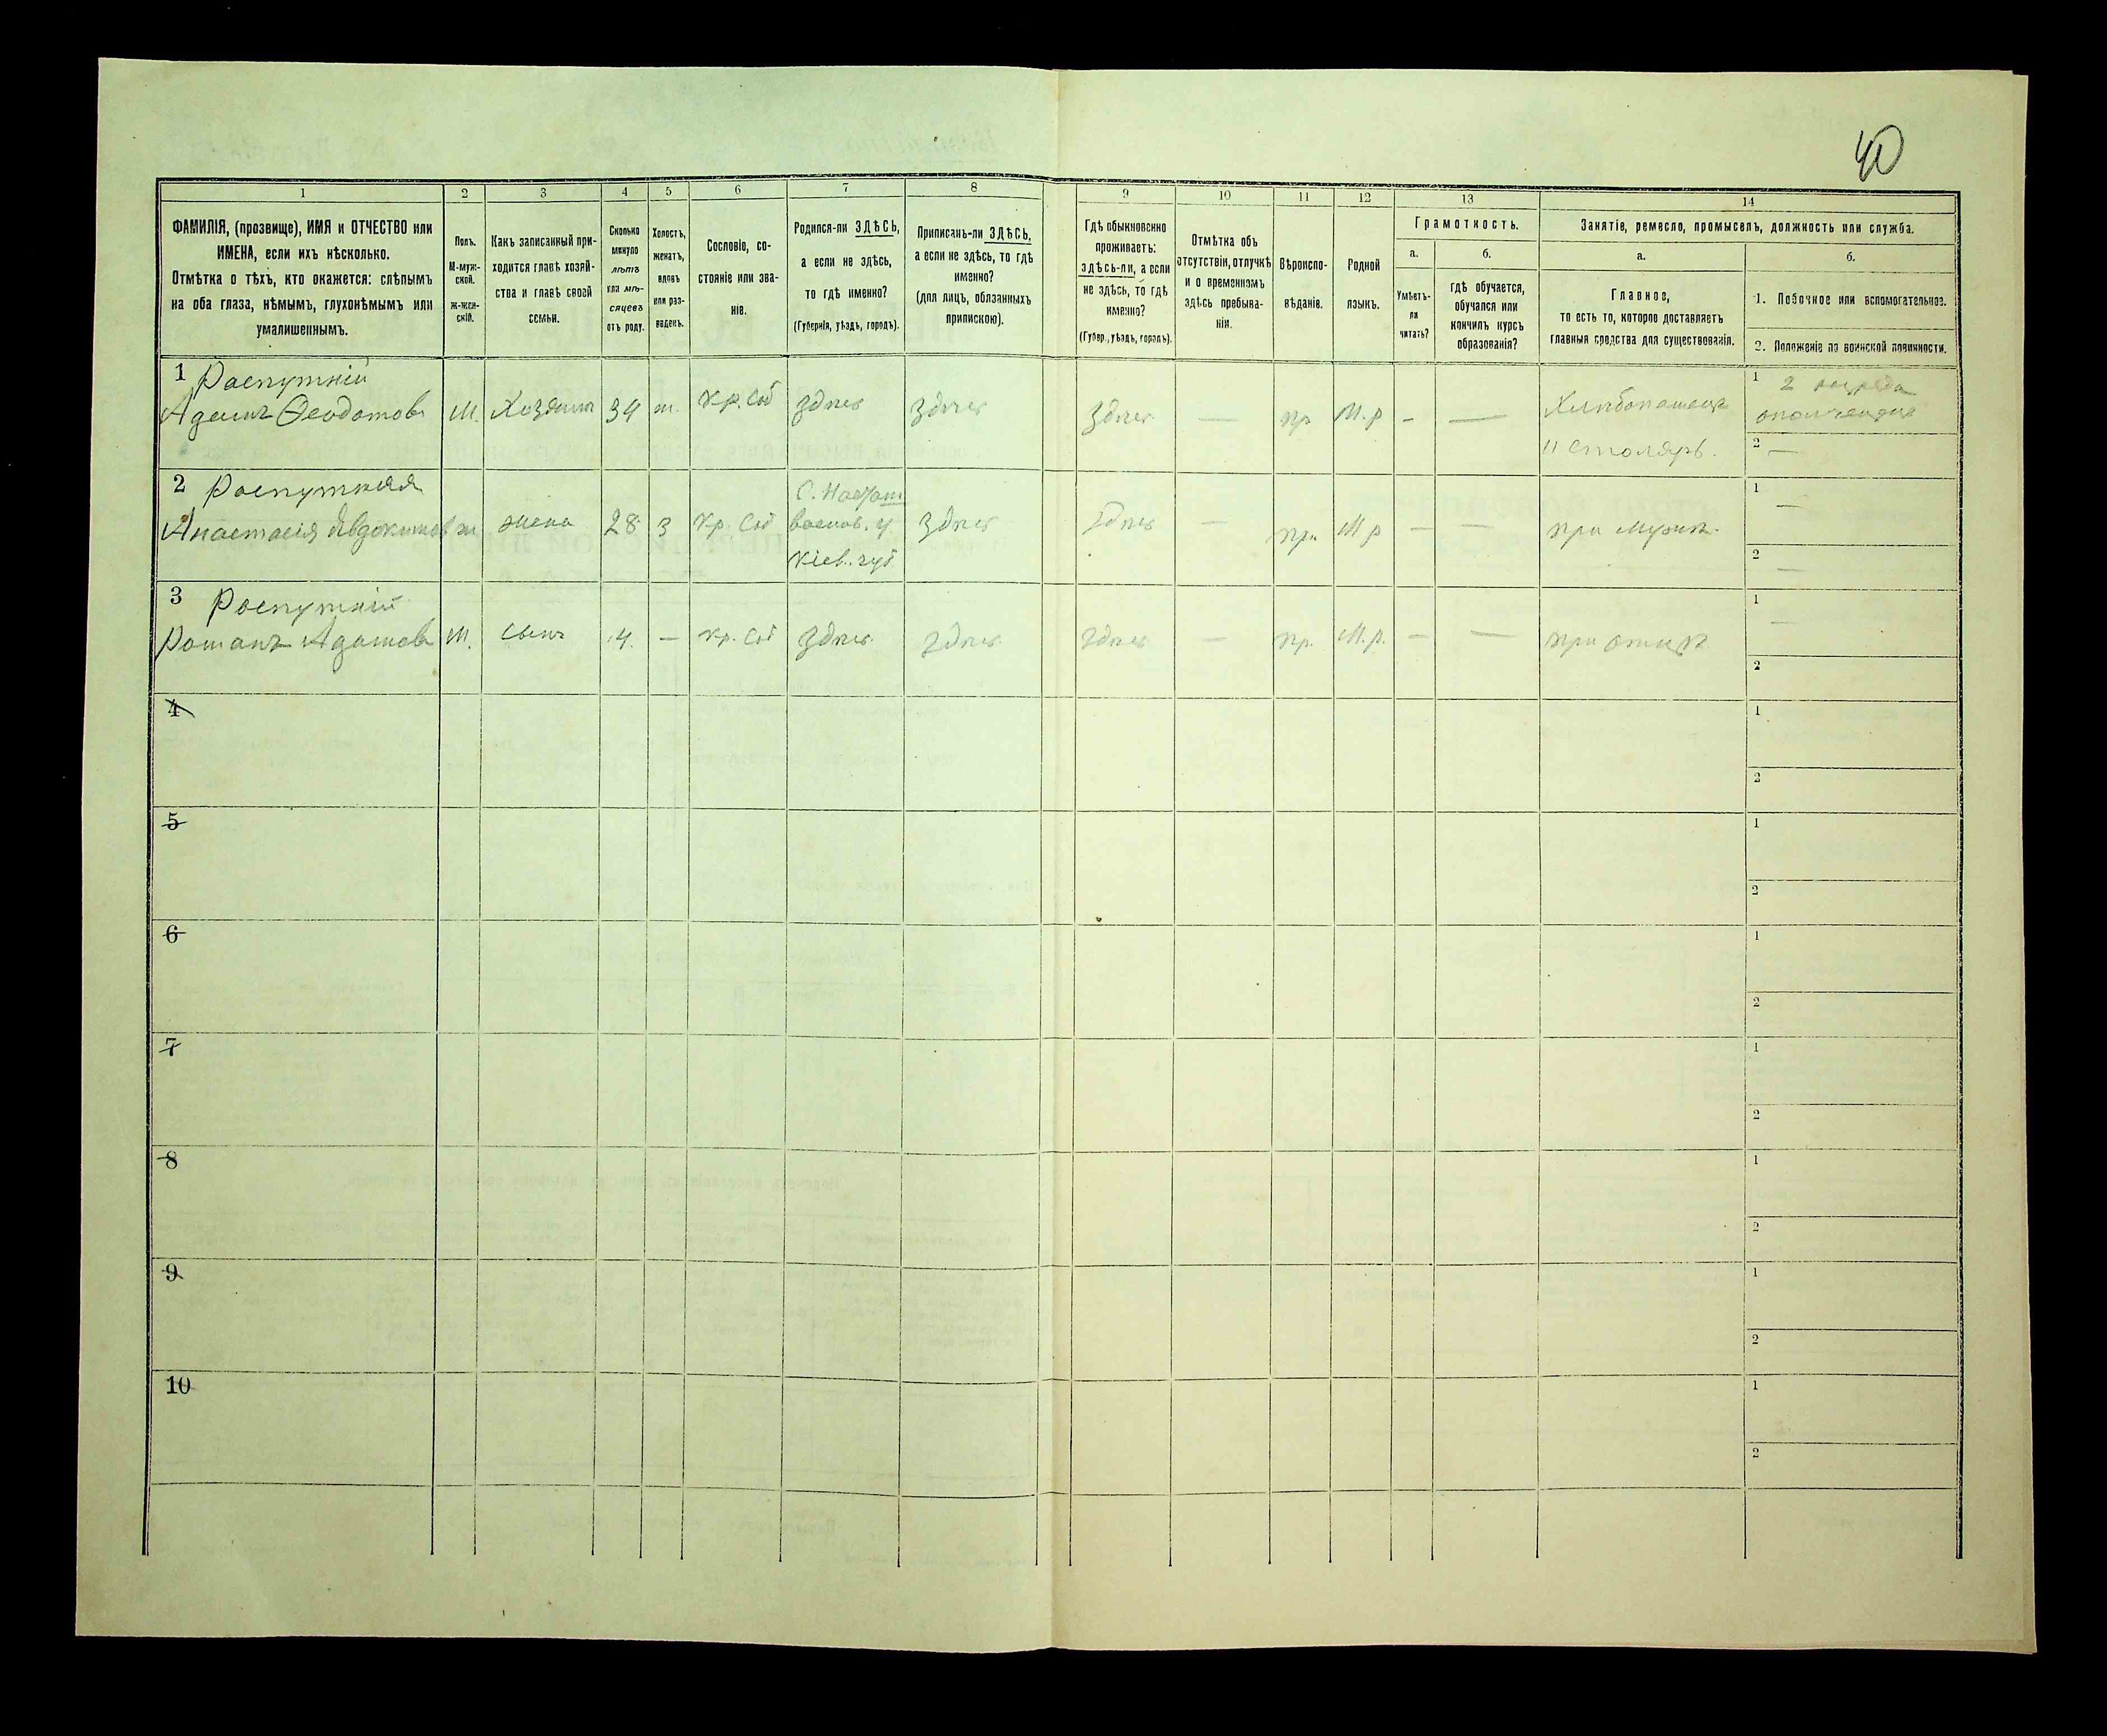 40
1 2 3 4 5 6 7 8 9 10 11 12 13 14
ФАМИЛІЯ, (прозвище), ИМЯ и ОТЧЕСТВО или
ИМЕНА, если ихъ нѣсколько.
Отмѣтка о тѣхъ, кто окажется: слѣпымъ
на оба глаза, нѣмымъ, глухонѣмымъ или
умалишеннымъ.
Полъ.
М-муж-
ской.
Ж-жен-
скій.
Какъ записанный при-
ходится главѣ хозяй-
ства и главѣ своей
семьи.
Сколько
минуло
лѣтъ
или мѣ-
сяцевъ
отъ роду.
Холостъ,
женатъ,
вдовъ
или раз-
веденъ.
Сословіе, со-
стояніе или зва-
ніе.
Родился-ли ЗДѢСЬ,
а если не здѣсь,
то гдѣ именно?
(Губернія, уѣздъ, городъ).
Приписанъ-ли ЗДѢСЬ,
а если не здѣсь, то гдѣ
именно?
(для лицъ, обязанныхъ
припискою).
Гдѣ обыкновенно
проживаетъ:
здѣсь-ли, а если
не здѣсь, то гдѣ
именно?
(Губер., уѣздъ, городъ).
Отмѣтка объ
отсутствіи, отлучкѣ
и о временномъ
здѣсь пребыва-
ніи.
Вѣроиспо-
вѣданіе.
Родной
языкъ.
Грамотность.
а.
Умѣетъ-
ли
читать?
б.
гдѣ обучается,
обучался или
кончилъ курсъ
образованія?
Занятіе, ремесло, промыселъ, должность или служба.
а.
Главное,
то есть то, которое доставляетъ
главныя средства для существованія.
б.
1. Побочное или вспомогательное.
2. Положеніе по воинской повинности.
1 Распутній
Адамъ Феодотовъ М. Хозяинъ 34 ж. кр. соб здѣсь здѣсь здѣсь — пр М.р — — Хлѣбопашецъ
и столяръ.
1 2 разряда
ополченія
2 —
2 Распутняя
Анастасія Евдокимов ж жена 28 з кр. соб
васильк. у
Кіев. губ
здѣсь здѣсь — пр. М р — — при мужѣ
1 —
2 —
3 Распутній
Романъ Адамовъ М. сынъ 4. — кр. соб здѣсь здѣсь здѣсь — пр. М.р. — — при отцѣ
1 —
2
4
1
2
5
1
2
6
1
2
7
1
2
8
1
2
9
1
2
10
1
2